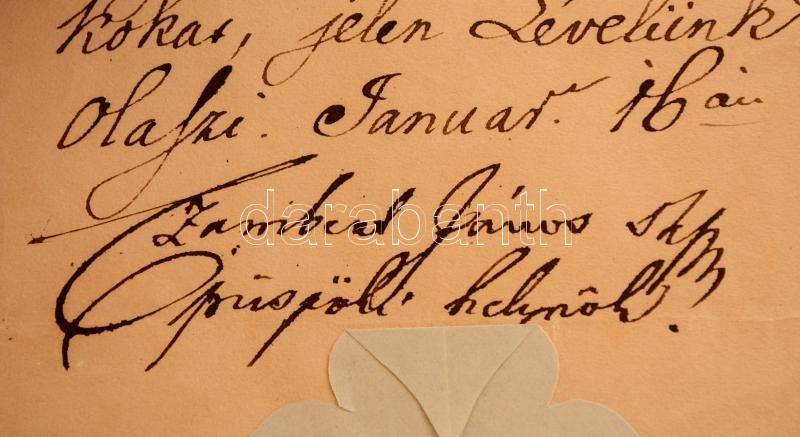 kokat, jelen Levelünk
Olaszi. Januar. 16án
Zambed János skp
püspöki helynök.
darabanth